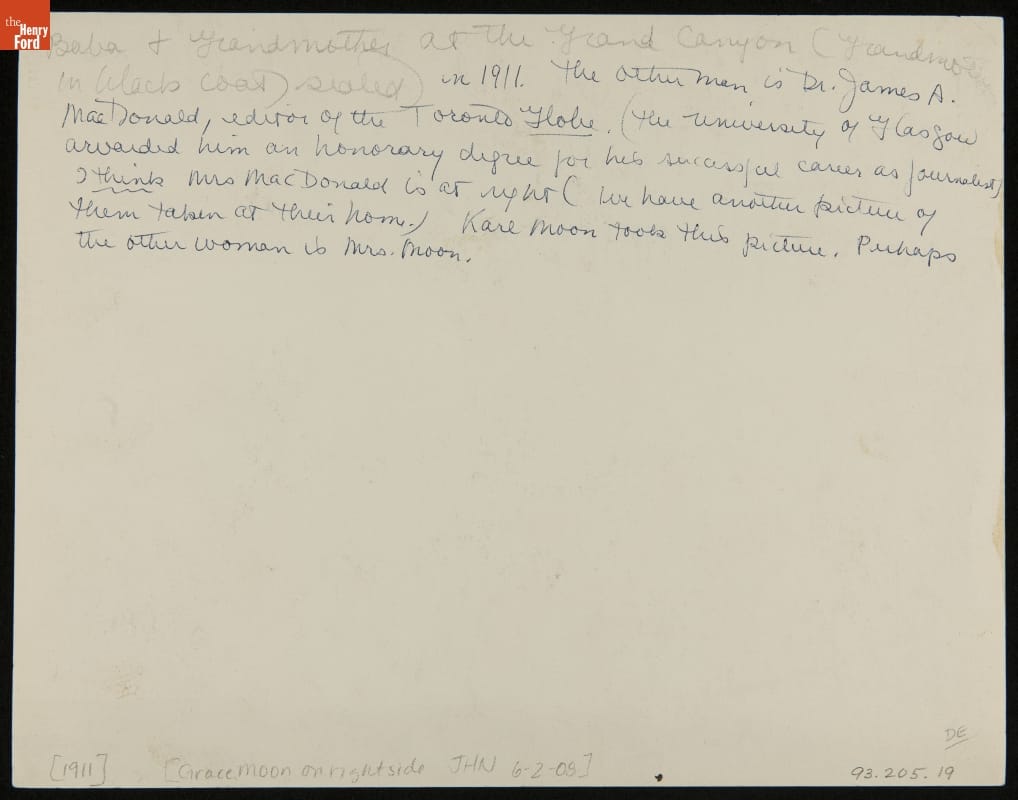 the
Henry
Ford
Baba & Grandmother at the Grand Canyon (Grandmother
in black coat, seated) in 1911. The other man is Dr. James A.
MacDonald, editor of the Toronto Globe. (The University of Glasgow
awarded him an honorary degree for his sucessful career as journalist)
I think Mrs MacDonald is at right (we have another picture of
them taken at their home.) Karl Moon took this picture. Perhaps
the other woman is Mrs. Moon.
DE
[1911] [Grace Moon on right side JHN 6-2-09]
93.205.19